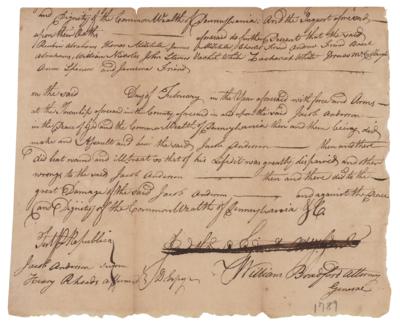 and Dignity of the CommonWealth of Pennsylvania. And the Inquest aforesaid
upon their Oaths aforesaid do further Present that the said
Reuben Abrahams Thomas James Friend Andrew Friend Basil
Abrahams, William John Rachel White Zachariah White Jonas
Ann Spencer and Friend
on the said Day of February in the Year aforesaid with force and Arms
at the Township aforesaid in the County aforesaid in and upon the said Jacob Anderson
in the Peace of God and the CommonWealth of Pennsylvania then and there being, did
make and Assault and him the said Jacob Anderson then and there
did beat wound and illtreat so that of his Life it was greatly dispaired, and other
wrongs to the said Jacob Anderson then and there did to the
great Damage of the said Jacob Anderson and against the Peace
and Dignity of the CommonWealth of Pennsylvania &c.
Test. P. Republica
Jacob Anderson sworn
Rhoads affirmed
William Bradford Attorney
General
1787